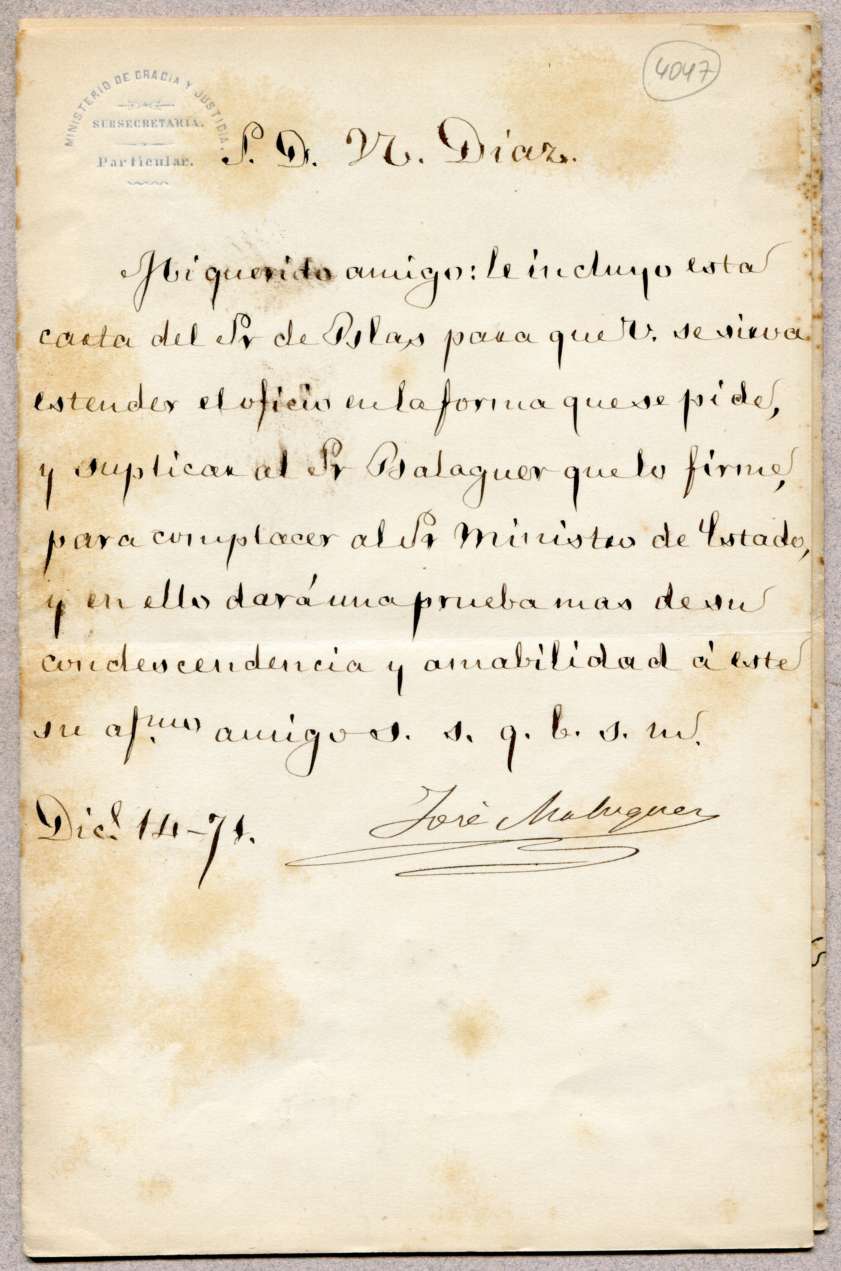 MINISTERIO DE GRACIA Y JUSTICIA.
SUBSECRETARIA.
Particular.
4047
S. D. N. Diaz.
Mi querido amigo: le incluyo esta
carta del Sr de Blas para que V. se sirva
estender el oficio en la forma que se pide,
y suplicar al Sr Balaguer que lo firme,
para complacer al Sr Ministro de Estado,
y en ello dará una prueba mas de su
condescendencia y amabilidad á este
su af.mo amigo s. s. q. b. s. m.
Dice. 14-71.
José Maluquer